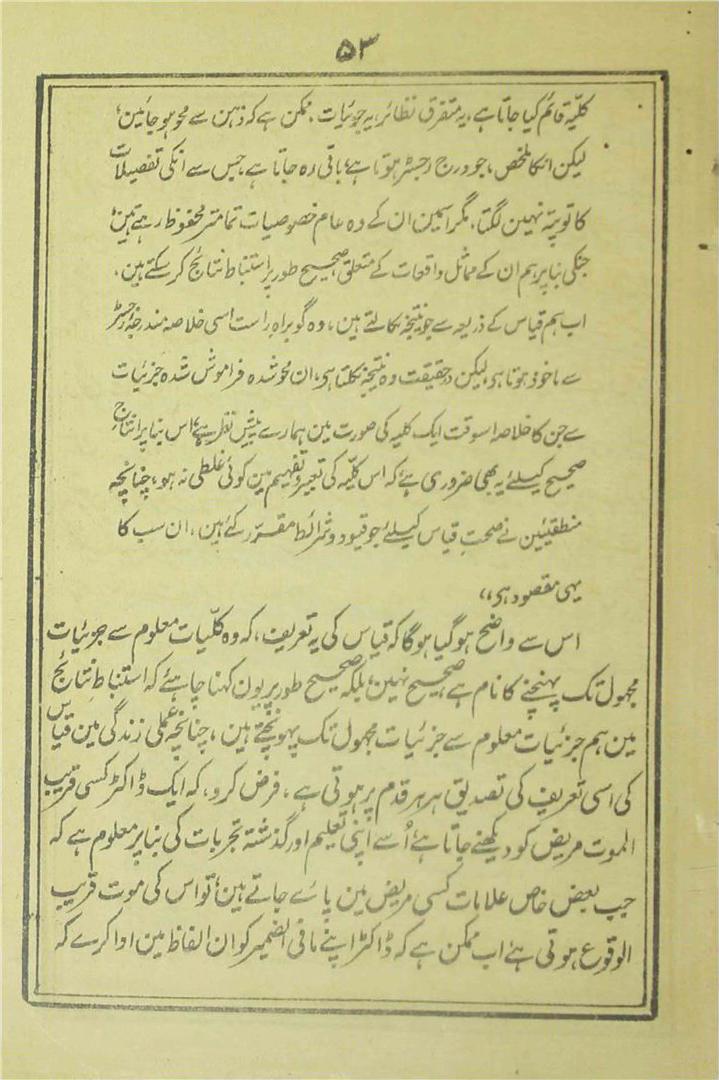 ۵۳
کلیّہ قائم کیا جاتا ہے، یہ متفرق نظائر، یہ جزئیات، ممکن ہے کہ ذہن سے محو ہو جائین،
لیکن انکا ملخص، جو درج رجسٹر ہوتا ہے، باقی رہ جاتا ہے، جس سے انکی تفصیلات
کا تو پتہ نہین لگتا، مگر اسمین ان کے وہ عام خصوصیات تمامتر محفوظ رہتے ہین،
جنکی بنا پر ہم ان کے مماثل واقعات کے متعلق صحیح طور پر استنباط نتائج کر سکتے ہین،
اب ہم قیاس کے ذریعہ سے جو نتیجہ نکالتے ہین، وہ گو براہ راست اسی خلاصہ مندرجۂ رجسٹر
سے ماخوذ ہوتا ہی، لیکن درحقیقت وہ نتیجہ نکلتا ہی، ان محو شدہ فراموش شدہ جزئیات
سے جن کا خلاصہ اسوقت ایک کلیہ کی صورت مین ہمارے پیش نظر ہے، اس بنا پر انتاج
صحیح کیلئے یہ بھی ضروری ہے کہ اس کلیّہ کی تعبیر و تفہیم مین کوئی غلطی نہ ہو، چنانچہ
منطقیّین نے صحتِ قیاس کیلئے جو قیود و شرائط مقرّر کئے ہین، ان سب کا
یہی مقصود ہی،،
اس سے واضح ہو گیا ہوگا کہ قیاس کی یہ تعریف، کہ وہ کلّیات معلوم سے جزئیات
مجہول تک پہنچنے کا نام ہے صحیح نہین، بلکہ صحیح طور پر یون کہنا چاہئے کہ استنباط نتائج
مین ہم جزئیات معلوم سے جزئیات مجہول تک پہونچتے ہین، چنانچہ عملی زندگی مین قیاس
کی اسی تعریف کی تصدیق ہر ہر قدم پر ہوتی ہے، فرض کرو، کہ ایک ڈاکٹر کسی قریب
الموت مریض کو دیکھنے جاتا ہے، اُسے اپنی تعلیم اور گذشتہ تجربات کی بنا پر معلوم ہے کہ
جب بعض خاص علامات کسی مریض مین پائے جاتے ہین، تو اس کی موت قریب
الوقوع ہوتی ہے، اب ممکن ہے کہ ڈاکٹر اپنے مافی الضمیر کو ان الفاظ مین ادا کرے کہ